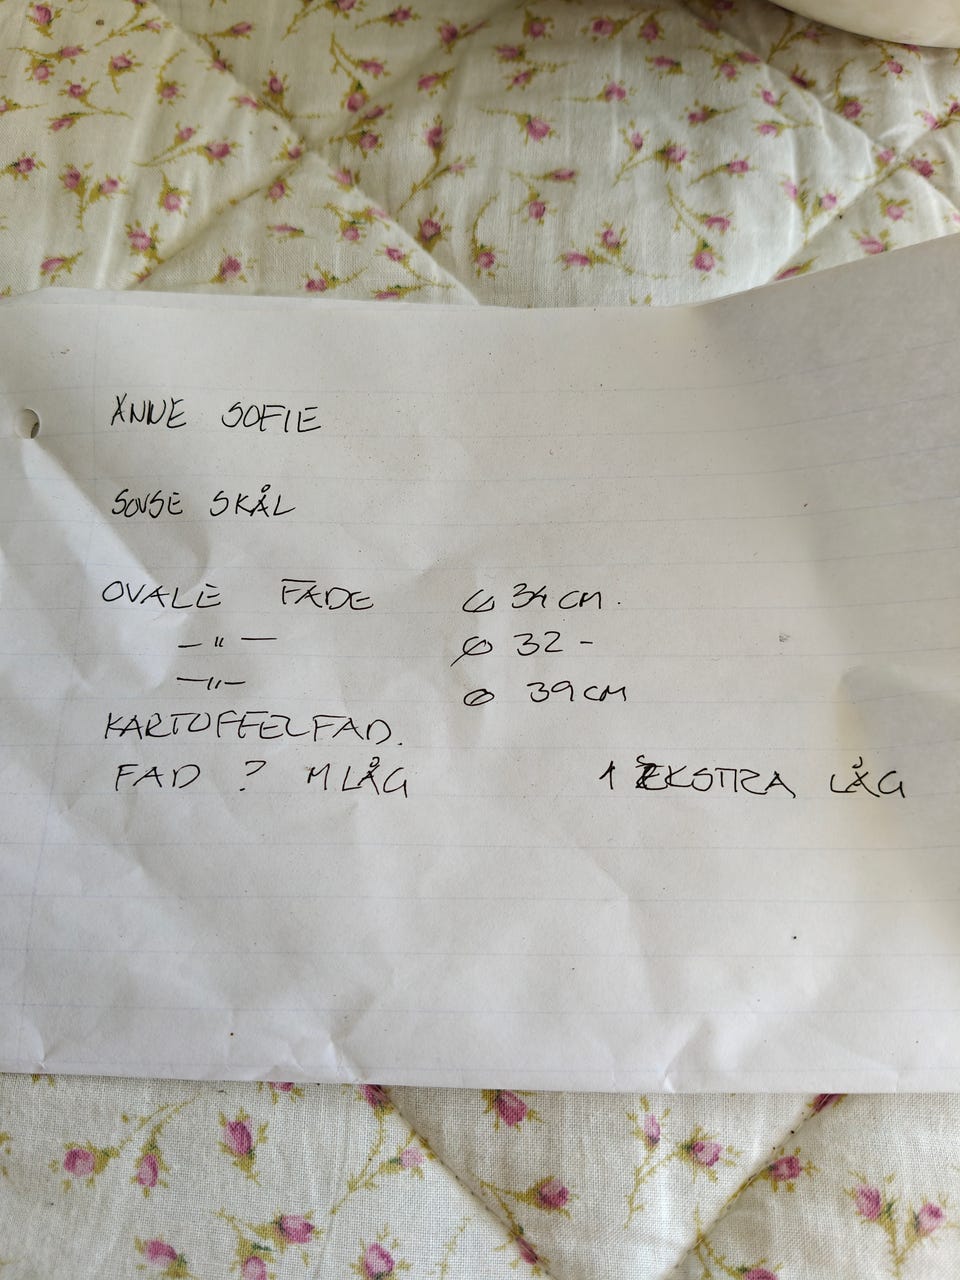 ANNE SOFIE
SOVSE SKÅL
OVALE FADE Ø 34 CM.
— " — Ø 32 -
— " — Ø 39 CM
KARTOFFELFAD.
FAD ? M LÅG 1 EKSTRA LÅG